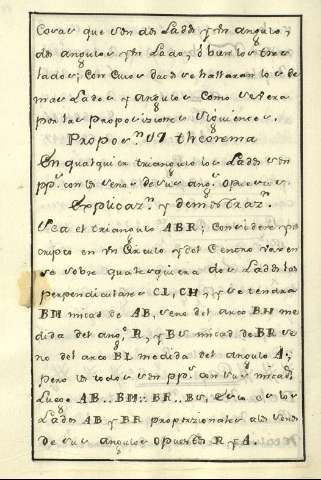 Cosas que son dos Lados y un angulo;
dos angulos y un Lado; ò bien los tres
lados; con cuios datos se hallaran los de
mas Lados y Angulos como se verà
por las Proposiziones siguientes.
Propos.n VI theorema
En qualquier triangulo los Lados son
pp.s con los senos de sus ang.s opuestos.
Explicaz.n y demostraz.n
Sea el triangulo ABR; Considerese ins
cripto en un Circulo y del Centro
se sobre qualesquiera dos Lados las
perpendiculares CI, CH, y se tendra
BM mitad de AB, seno del arco BH me
dida del ang.o R, y BS mitad de BR se
no del arco BI medida del angulo A;
pero los todos son pp.s con sus mitad.s
Luego AB..BM:: BR..BS, esto es los
Lados AB y BR proporzionales a los senos
de sus angulos opuestos R y A.